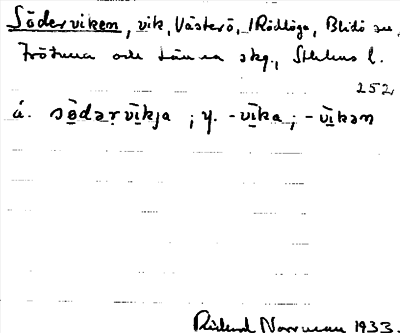 Söderviken, vik, Västerö, /Rödlöga, Blidö sn,
Frötuna och Länna skg., Sthlms l.
252
ä. södərvikja ; y. -vika ; -vikən
Rickard Norrman 1933.